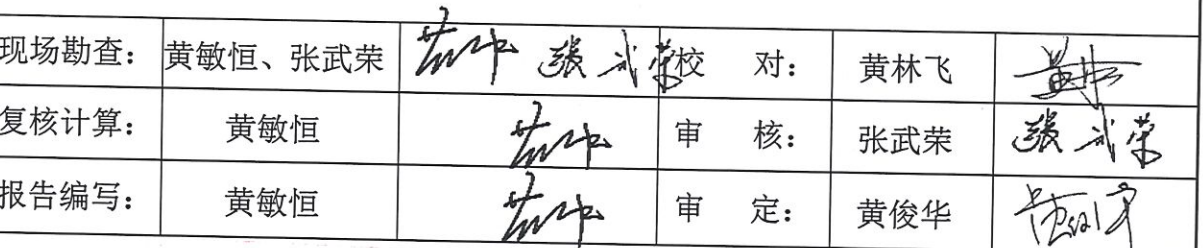 现场勘查： 黄敏恒、张武荣 张武荣 校 对： 黄林飞
复核计算： 黄敏恒 审 核： 张武荣 张武荣
报告编写： 黄敏恒 审 定： 黄俊华